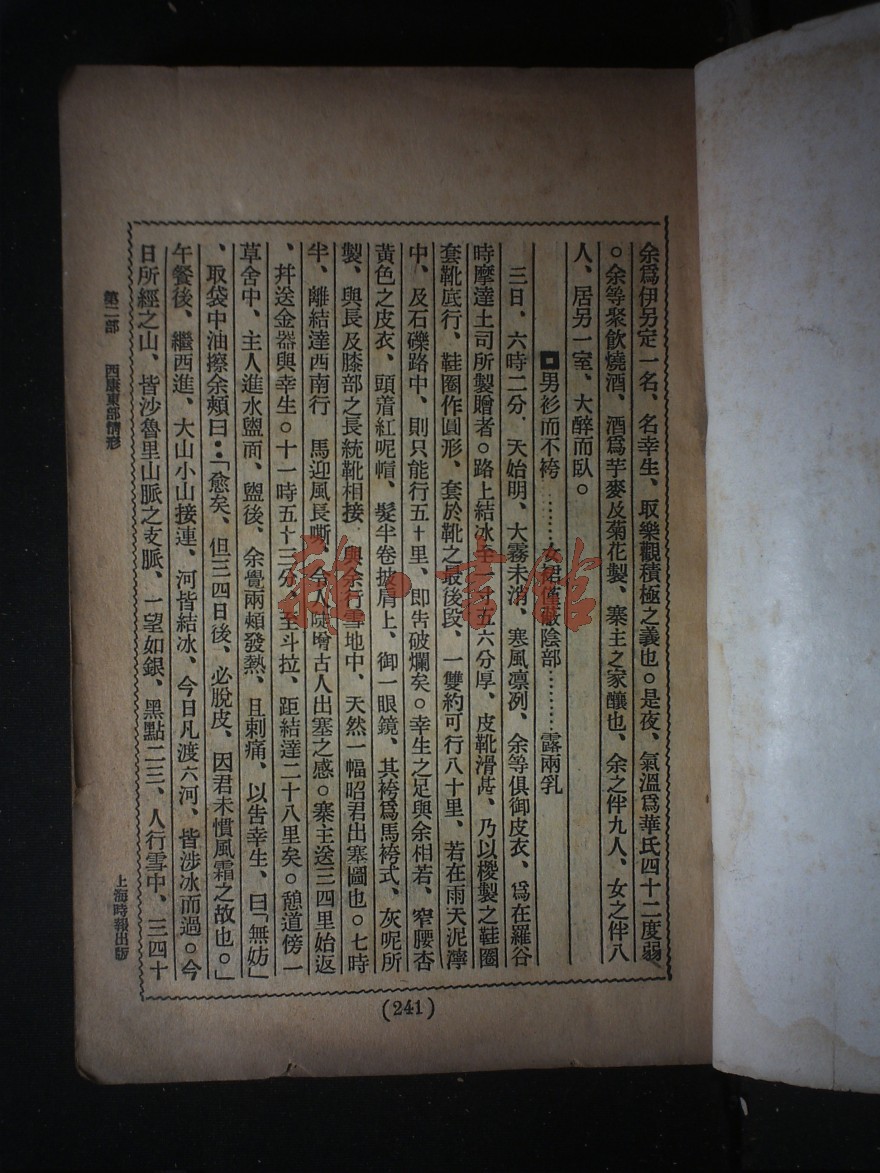 余爲伊另定一名、名幸生、取樂觀積極之義也。是夜、氣溫爲華氏四十二度弱
。余等聚飲燒酒、酒爲芋麥及菊花製、寨主之家釀也、余之伴九人、女之伴八
人、居另一室、大醉而臥。
男衫而不袴………女裙僅蔽陰部………露兩乳
三日、六時二分、天始明、大霧未消、寒風凛冽、余等俱御皮衣、爲在羅谷
時摩達土司所製贈者。路上結冰至 五六分厚、皮靴滑甚、乃以椶製之鞋圈
套靴底行、鞋圈作圓形、套於靴之最後段、一雙約可行八十里、若在雨天泥濘
中、及石礫路中、則只能行五十里、即吿破爛矣。幸生之足與余相若、窄腰杏
黃色之皮衣、頭着紅呢帽、髮半卷披肩上、御一眼鏡、其袴爲馬袴式、灰呢所
製、與長及膝部之長統靴相接 與余行雪地中、天然一幅昭君出塞圖也。七時
半、離結達西南行 馬迎風長嘶、令人陡增古人出塞之感。寨主送三四里始返
、幷送金器與幸生。十一時五十三分、至斗拉、距結達二十八里矣。憩道傍一
草舍中、主人進水盥而、盥後、余覺兩頰發熱、且刺痛、以吿幸生、曰「無妨」
、取袋中油擦余頰曰：「愈矣、但三四日後、必脫皮、因君未慣風霜之故也。」
午餐後、繼西進、大山小山接連、河皆結冰、今日凡渡六河、皆涉冰而過。今
日所經之山、皆沙魯里山脈之支脈、一望如銀、黑點二三、人行雪中、三四十
第二部 西康東部情形
上海時報出版
(241)
雜·書館